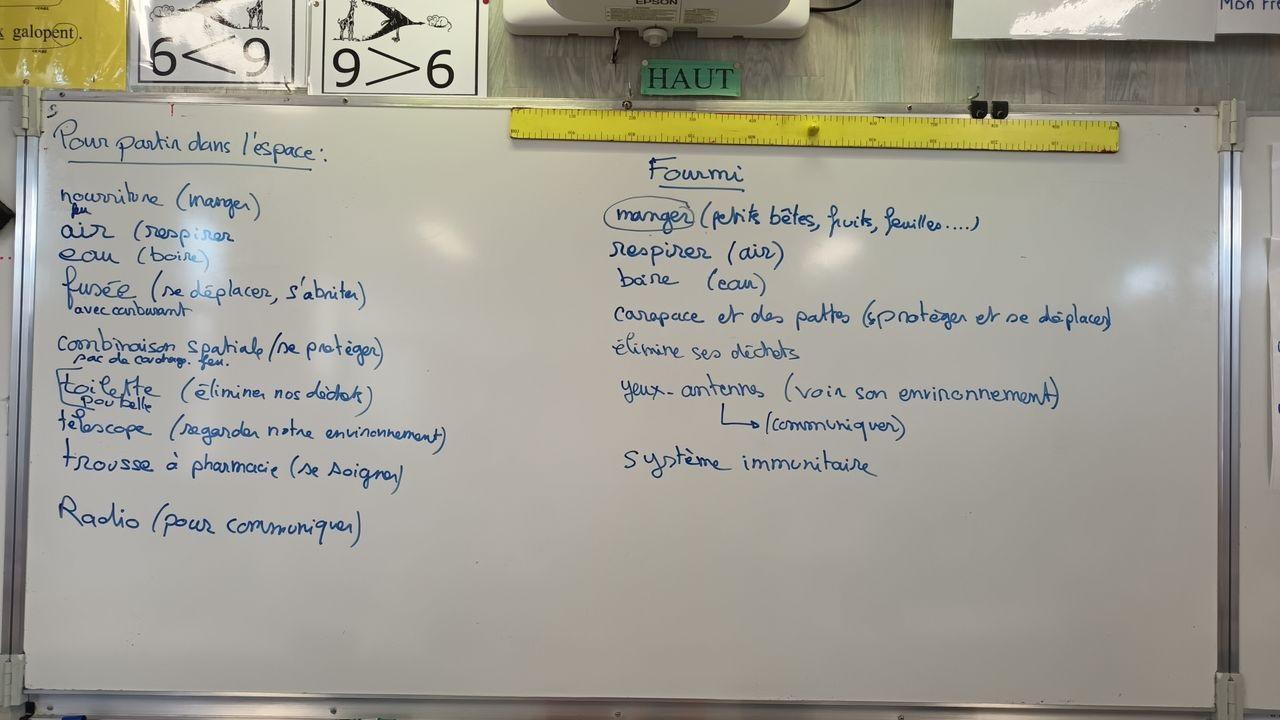 galopent).
6<9
9>6
EPSON
HAUT
Mon
Pour partir dans l'espace :
nourriture (manger)
air (respirer
eau (boire)
fusée (se déplacer, s'abriter)
avec carburant
combinaison spatiale (se protéger)
sac de couchage. feu.
toilette (éliminer nos déchets)
poubelle
télescope (regarder notre environnement)
trousse à pharmacie (se soigner)
Radio (pour communiquer)
Fourmi
manger (petits bêtes, fruits, feuilles....)
respirer (air)
boire (eau)
carapace et des pattes (protéger et se déplacer)
élimine ses déchets
yeux-antennes (voir son environnement)
(communiquer)
système immunitaire